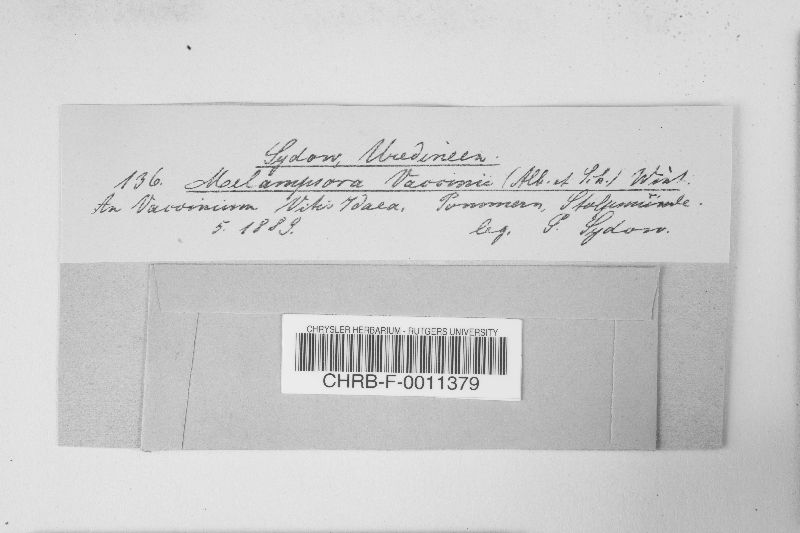 Sydow, Uredineen.
136. Melampsora Vaccinii (Alb. et Sch.) Wint.
An Vaccinium Vitis Idaea, Pommern, Stolpmünde.
5. 1889. leg. P. Sydow.
CHRYSLER HERBARIUM - RUTGERS UNIVERSITY
CHRB-F-0011379